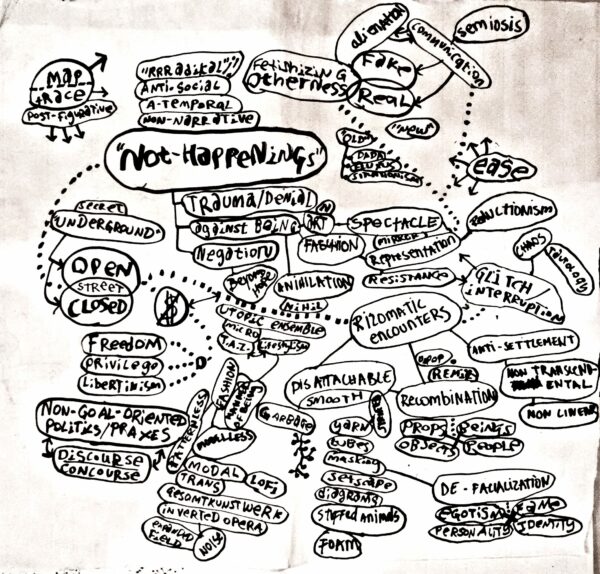 MAP
TRACE
POST-FIGURATIVE
"RRRADIKAL"
ANTI-SOCIAL
A-TEMPORAL
NON-NARRATIVE
"NOT-HAPPENINGS"
FETISHIZING
OTHERNESS
ALIENATION
FAKE
REAL
COMMUNICATION
SEMIOSIS
"NEW"
"OLD"
DADA
FLUXUS
EASE
TRAUMA/DENIAL
AGAINST BEING
IN
ART
FASHION
SPECTACLE
MIRRER
REPRESENTATION
RESISTANCE
REDUCTIONISM
CHAOS
TAUTOLOGY
GLITCH
INTERRUPTION
NEGATION
ANIHILATION
NIHIL
SECRET
"UNDERGROUND"
OPEN
STREET
CLOSED
$
UTOPIC ENSEMBLE
MICRO
T.A.Z.
RIZOMATIC
ENCOUNTERS
ANTI-SETTLEMENT
NON TRANSCEND-
ENTAL
NON LINEAR
FREEDOM
PRIVILEGE
LIBERTINISM
D
DISATTACHABLE
SMOOTH
REMIX
RECOMBINATION
PROPS
BEINGS
OBJECTS
PEOPLE
NON-GOAL-ORIENTED
POLITICS/PRAXES
DISCOURSE
CONCOURSE
PATTERNLESS
FASHION
MANNER
OF BEING
GARBAGE
YARN
TUBES
MASKING
SETSCAPE
DIAGRAMS
STUFFED ANIMALS
FOAM
MODAL
TRANS
LOFI
GESAMTKUNSTWERK
INVERTED OPERA
EXPANDED
FIELD
NOISE
DE-FACIALIZATION
EGOTISM
FAME
PERSONALITY
IDENTITY